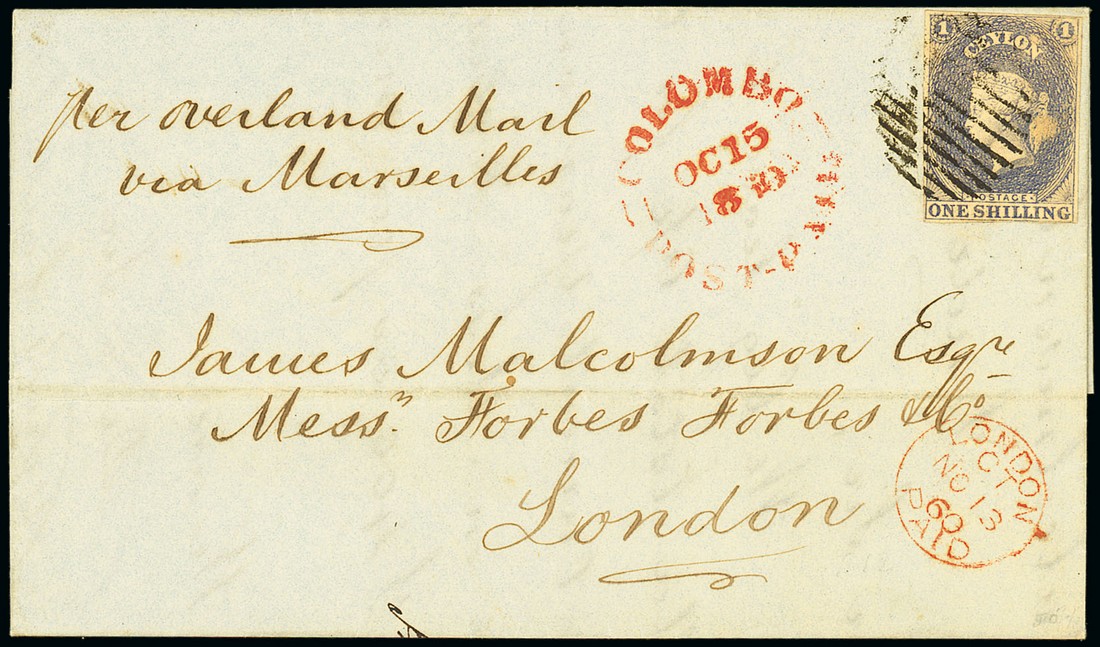 per Overland Mail
via Marseilles
COLOMBO
OC 15
POST-PAID
1 CEYLON 1
POSTAGE
ONE SHILLING
James Malcolmson Esqre
Messrs. Forbes Forbes & Co
London
LONDON
CT
NO 13
60
PAID